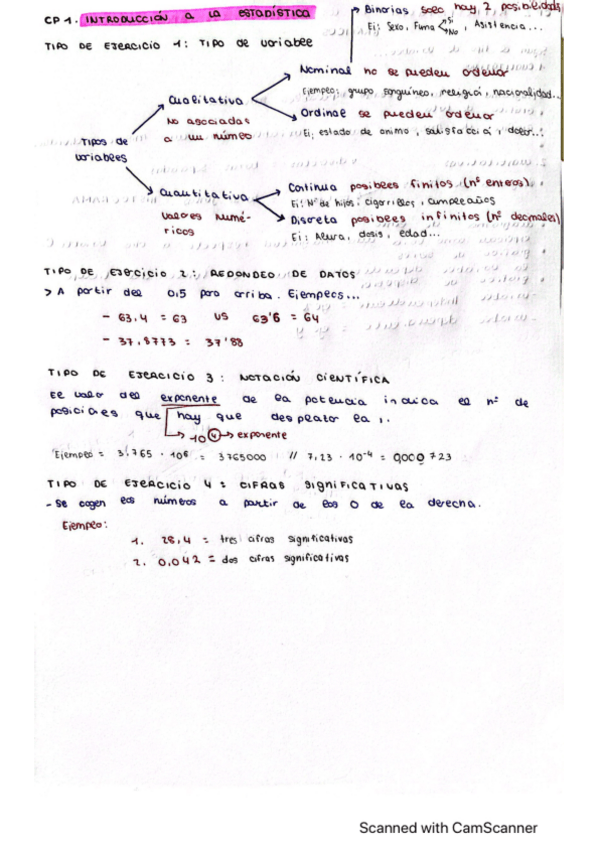 CP 1. INTRODUCCIÓN A LA ESTADÍSTICA
Binarias solo hay 2 posibilidades
Ej: Sexo, Fuma Sí No, Asistencia...
TIPO DE EJERCICIO 1: TIPO DE VARIABLE
Nominal no se pueden ordenar
Ejemplo: grupo sanguíneo, religión, nacionalidad...
Cualitativa
No asociadas
a un número
Ordinal se pueden ordenar
Ej: estado de animo, satisfacción, dolor...
Tipos de
variables
Cuantitativa
Valores numé-
ricos
Continua posibles finitos (nº enteros).
Ej: Nº de hijos, cigarrillos, cumpleaños
Discreta posibles infinitos (nº decimales)
Ej: Altura, dosis, edad...
TIPO DE EJERCICIO 2: REDONDEO DE DATOS
> A partir del 0,5 para arriba. Ejemplos...
- 63,4 = 63 vs 63'6 = 64
- 37,8773 = 37'88
TIPO DE EJERCICIO 3: NOTACIÓN CIENTÍFICA
El valor del exponente de la potencia indica el nº de
posiciones que hay que desplazar la ,.
10 4 → exponente
Ejemplo = 3,765 · 10⁶ = 3765000 // 7,23 · 10⁻⁴ = 0,000723
TIPO DE EJERCICIO 4: CIFRAS SIGNIFICATIVAS
- Se cogen los números a partir de los 0 de la derecha.
Ejemplo:
1. 28,4 = tres cifras significativas
2. 0,042 = dos cifras significativas
Scanned with CamScanner